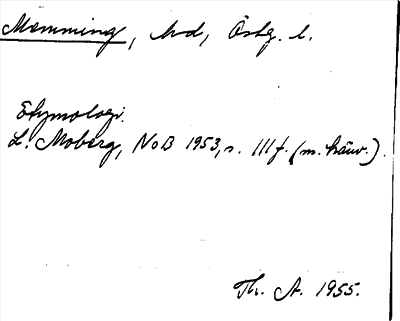 Memming, hd, Östg. l.
Etymologi.
L. Moberg, NoB 1953, s. 111 f. (m. hänv.).
Th. A. 1955.